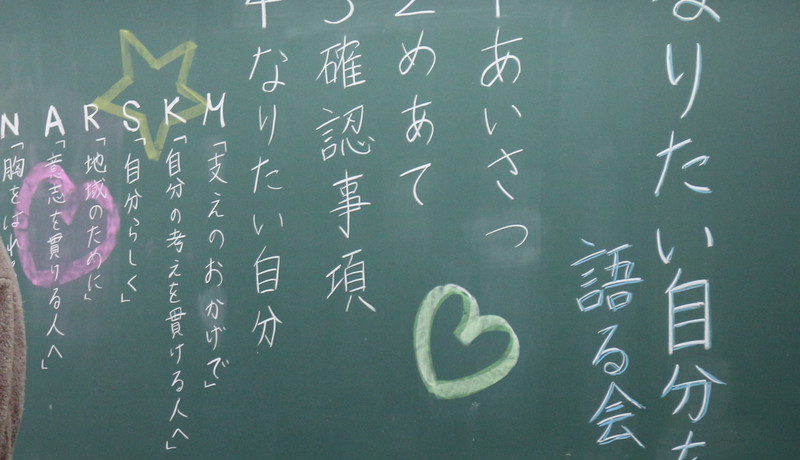 なりたい自分を
語る会
1 あいさつ
2 めあて
3 確認事項
4 なりたい自分
M「支えのおかげで」
K「自分の考えを貫ける人へ」
S「自分らしく」
R「地域のために」
A「意志を貫ける人へ」
N「胸をはれ